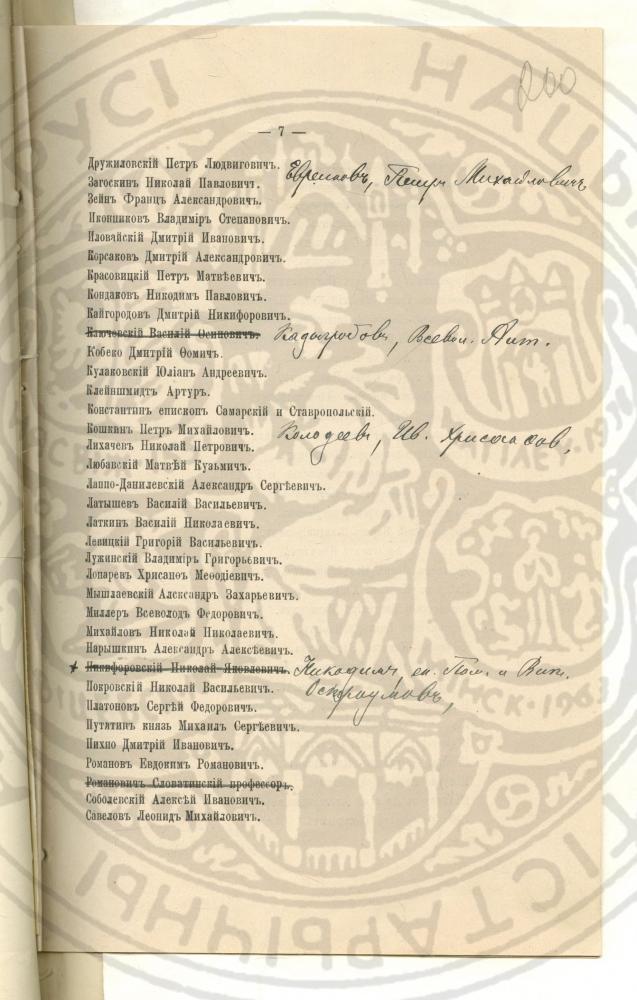 200
— 7 —
Дружиловскій Петръ Людвиговичъ.
Евреиновъ, Петръ Михайловичъ
Загоскинъ Николай Павловичъ.
Зейнъ Францъ Александровичъ.
Иконниковъ Владиміръ Степановичъ.
Иловайскій Дмитрій Ивановичъ.
Корсаковъ Дмитрій Александровичъ.
Красовицкій Петръ Матвѣевичъ.
Кондаковъ Никодимъ Павловичъ.
Кайгородовъ Дмитрій Никифоровичъ.
Ключевскій Василій Осиповичъ. Кадыгробовъ, Всевол. Ант.
Кобеко Дмитрій Ѳомичъ.
Кулаковскій Юліанъ Андреевичъ.
Клейншмидтъ Артуръ.
Константинъ епископъ Самарскій и Ставропольскій.
Кошкинъ Петръ Михайловичъ. Колодеевъ, Ив. Хрисанѳов.
Лихачевъ Николай Петровичъ.
Любавскій Матвѣй Кузьмичъ.
Лаппо-Данилевскій Александръ Сергѣевичъ.
Латышевъ Василій Васильевичъ.
Латкинъ Василій Николаевичъ.
Левицкій Григорій Васильевичъ.
Лужинскій Владиміръ Григорьевичъ.
Лопаревъ Хрисанѳъ Меѳодіевичъ.
Мышлаевскій Александръ Захарьевичъ.
Миллеръ Всеволодъ Федоровичъ.
Михайловъ Николай Николаевичъ.
Нарышкинъ Александръ Алексѣевичъ.
Никифоровскій Николай Яковлевичъ. Никодимъ, еп. Пол. и Вит.
Покровскій Николай Васильевичъ. Остроумовъ,
Платоновъ Сергѣй Федоровичъ.
Путятинъ князь Михаилъ Сергѣевичъ.
Пихно Дмитрій Ивановичъ.
Романовъ Евдокимъ Романовичъ.
Романовичъ Словатинскій профессоръ.
Соболевскій Алексѣй Ивановичъ.
Савеловъ Леонидъ Михайловичъ.